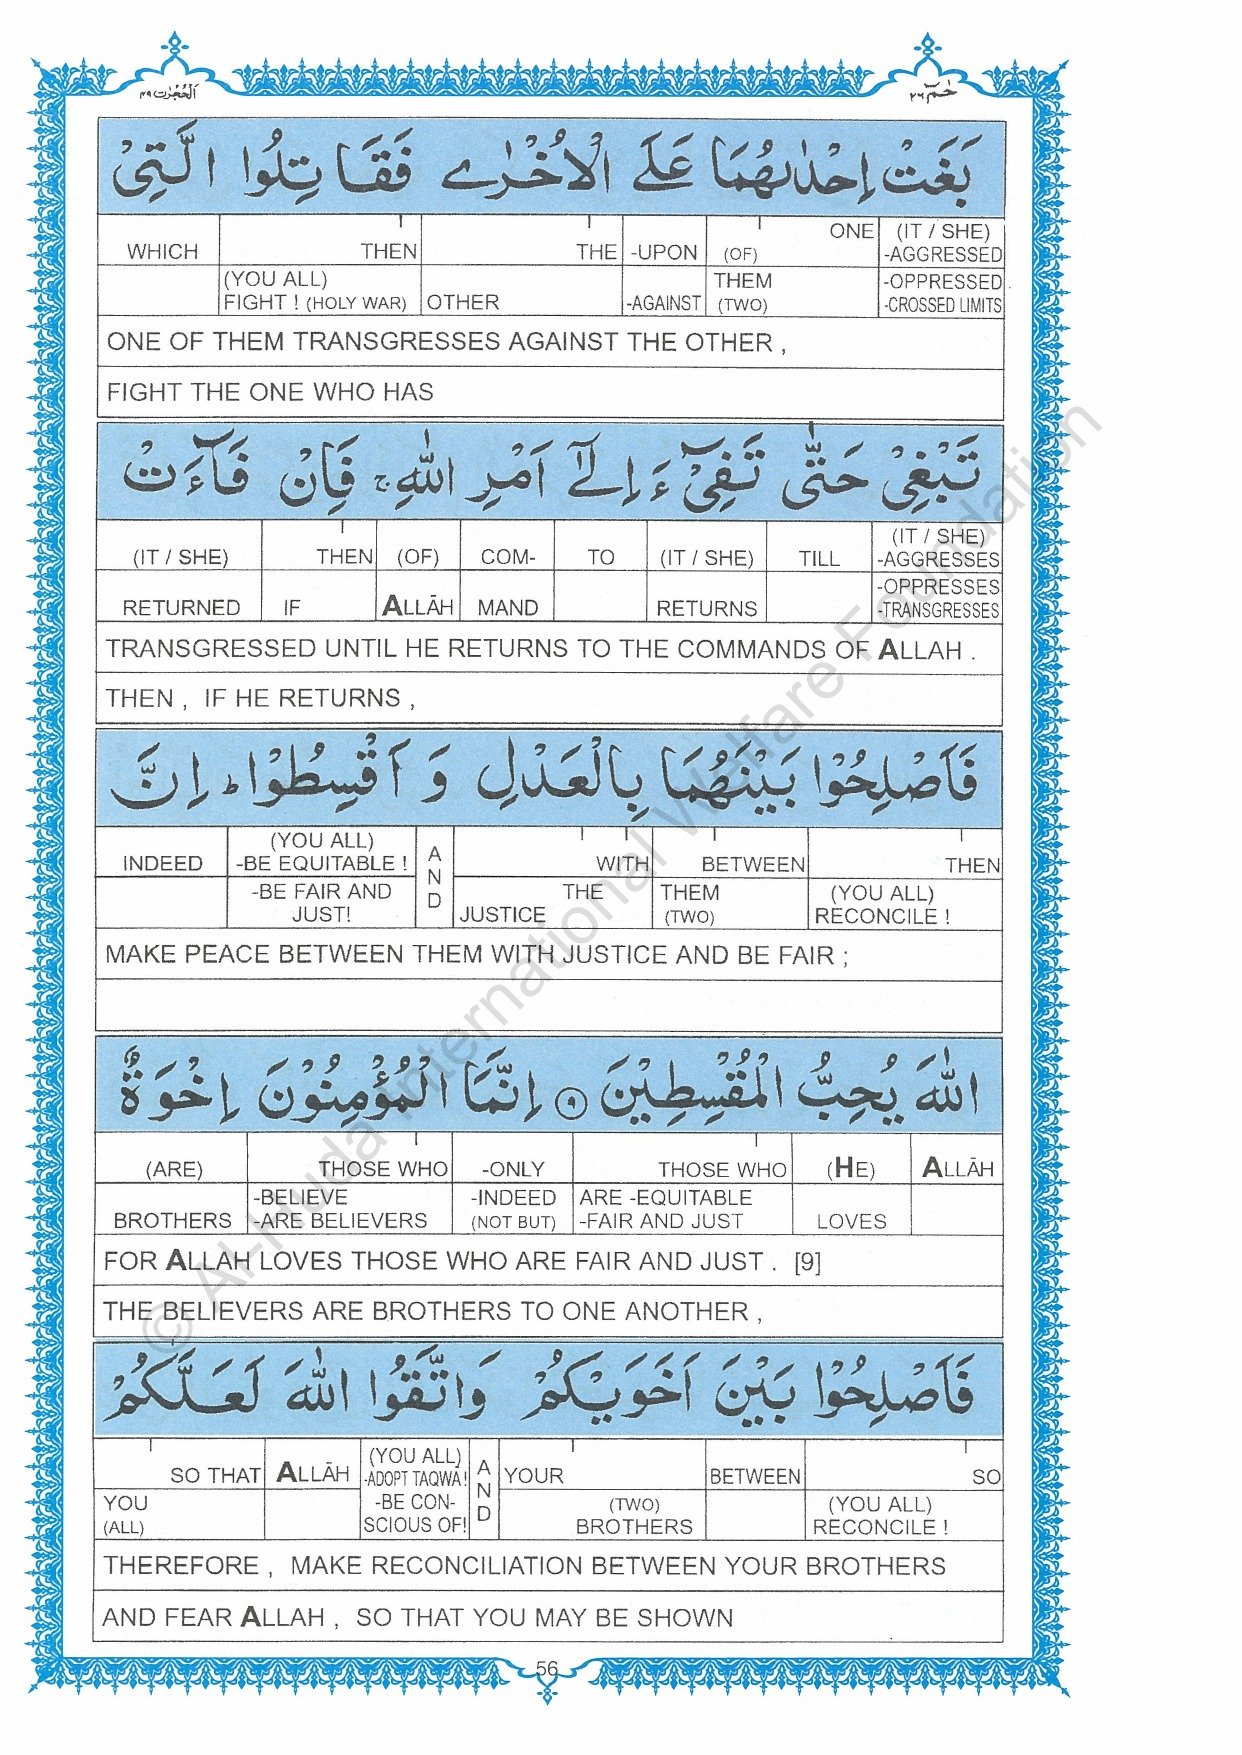 حٰمٓ ٢٦
اَلْحُجُرٰت ٤٩
بَغَتْ اِحْدٰىهُمَا عَلَى الْاُخْرٰى فَقَاتِلُوا الَّتِىْ
WHICH THEN THE -UPON (OF) ONE (IT / SHE) -AGGRESSED
(YOU ALL) FIGHT ! (HOLY WAR) OTHER -AGAINST THEM (TWO) -OPPRESSED -CROSSED LIMITS
ONE OF THEM TRANSGRESSES AGAINST THE OTHER ,
FIGHT THE ONE WHO HAS
تَبْغِىْ حَتّٰى تَفِىْٓءَ اِلٰٓى اَمْرِ اللّٰهِ ۚ فَاِنْ فَآءَتْ
(IT / SHE) THEN (OF) COM- TO (IT / SHE) TILL (IT / SHE) -AGGRESSES
RETURNED IF ALLĀH MAND RETURNS -OPPRESSES -TRANSGRESSES
TRANSGRESSED UNTIL HE RETURNS TO THE COMMANDS OF ALLAH .
THEN , IF HE RETURNS ,
فَاَصْلِحُوْا بَيْنَهُمَا بِالْعَدْلِ وَ اَقْسِطُوْا ؕ اِنَّ
INDEED (YOU ALL) -BE EQUITABLE ! AND WITH BETWEEN THEN
-BE FAIR AND JUST! JUSTICE THE THEM (TWO) (YOU ALL) RECONCILE !
MAKE PEACE BETWEEN THEM WITH JUSTICE AND BE FAIR ;
اللّٰهَ يُحِبُّ الْمُقْسِطِيْنَ ٩ اِنَّمَا الْمُؤْمِنُوْنَ اِخْوَةٌ
(ARE) THOSE WHO -ONLY THOSE WHO (HE) ALLĀH
BROTHERS -BELIEVE -ARE BELIEVERS -INDEED (NOT BUT) ARE -EQUITABLE -FAIR AND JUST LOVES
FOR ALLAH LOVES THOSE WHO ARE FAIR AND JUST . [9]
THE BELIEVERS ARE BROTHERS TO ONE ANOTHER ,
فَاَصْلِحُوْا بَيْنَ اَخَوَيْكُمْ وَاتَّقُوا اللّٰهَ لَعَلَّكُمْ
SO THAT ALLĀH (YOU ALL) -ADOPT TAQWA! AND YOUR BETWEEN SO
YOU (ALL) -BE CON- SCIOUS OF! (TWO) BROTHERS (YOU ALL) RECONCILE !
THEREFORE , MAKE RECONCILIATION BETWEEN YOUR BROTHERS
AND FEAR ALLAH , SO THAT YOU MAY BE SHOWN
56
© Al-Huda International Welfare Foundation